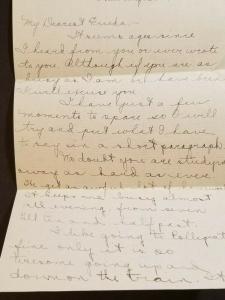 My Dearest Trieda:-
It seems ages since
I heard from you or ever wrote
to you. Although if you are as
busy as I am or have been
I will excuse you
I have just a few
moments to spare so I will
try and put what I have
to say in a short paragraph
No doubt you are studying
away as hard as ever.
We get an awful lot of
It keeps me busy almost
all evening from seven
till ten and half past.
I like going to Collegiate
fine only it is so
tiresome going up and
down on the train. It